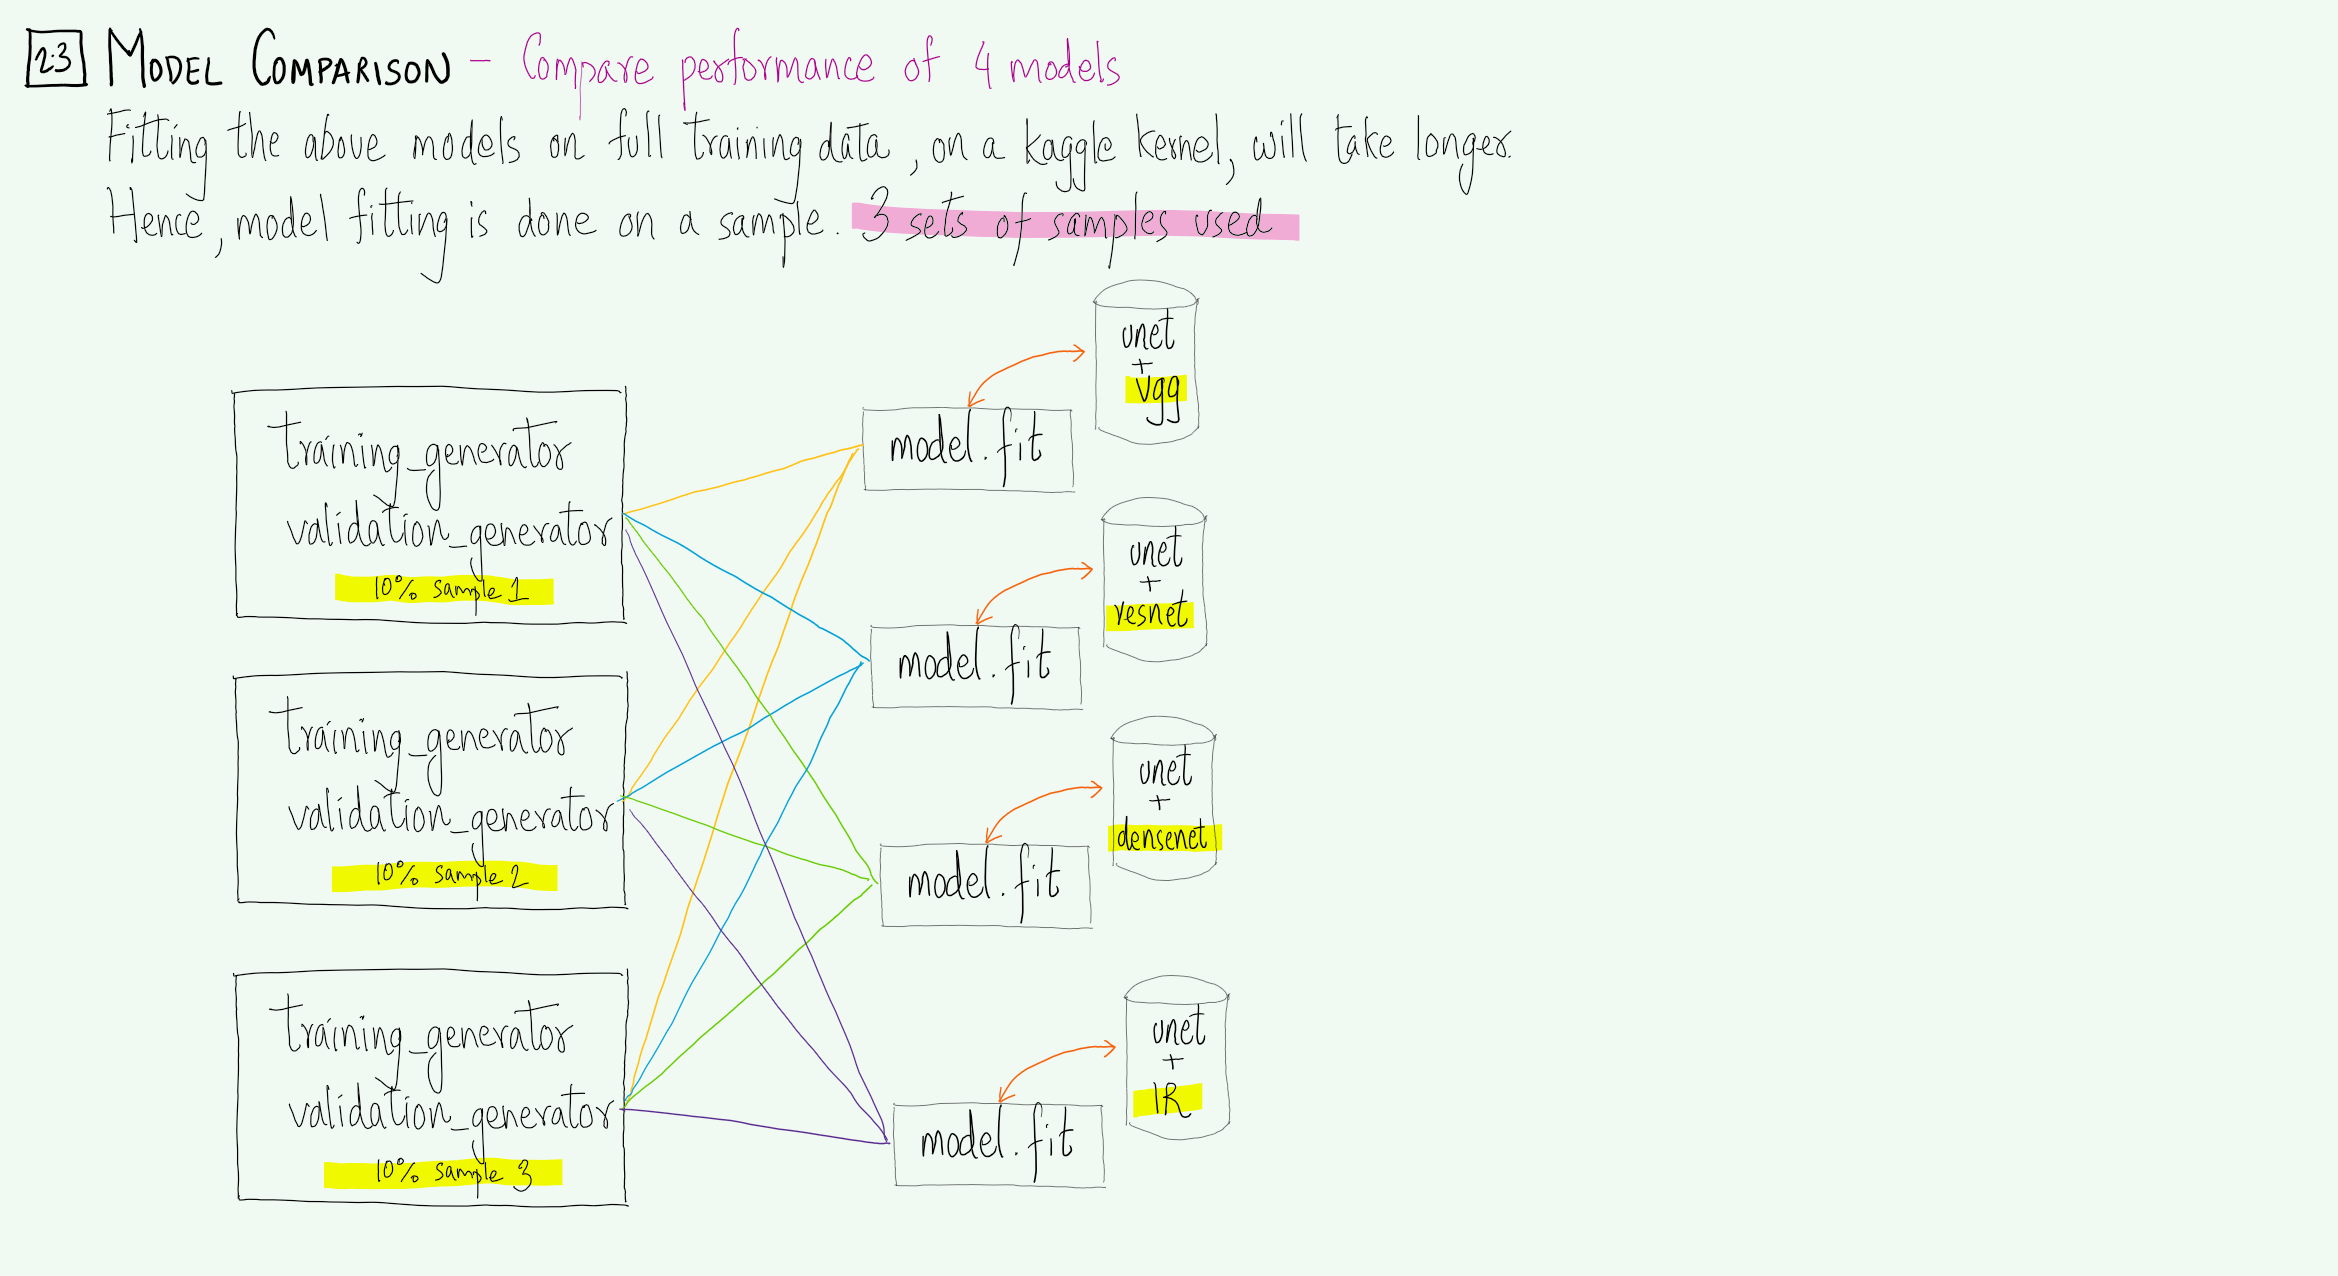 2.3 MODEL COMPARISON - Compare performance of 4 models
Fitting the above models on full training data, on a kaggle kernel, will take longer.
Hence, model fitting is done on a sample. 3 sets of samples used
training_generator
validation_generator
10% sample 1
training_generator
validation_generator
10% sample 2
training_generator
validation_generator
10% sample 3
model.fit
unet
+
vgg
model.fit
unet
+
resnet
model.fit
unet
+
densenet
model.fit
unet
+
IR